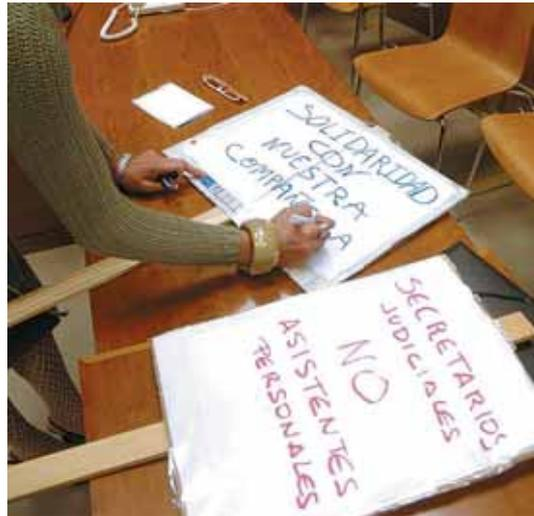 SOLIDARIDAD
CON
NUESTRA
COMPAÑERA
SECRETARIOS
JUDICIALES
NO
ASISTENTES
PERSONALES